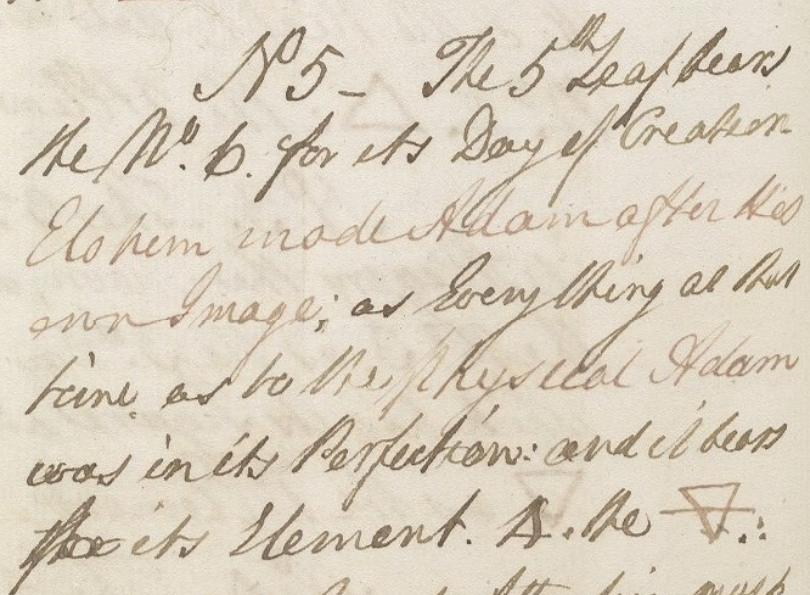 No 5 - The 5th Leaf bears
the No. 6. for its Day of Creation
Elohim made Adam after His
own Image; as Every thing at that
time as to the physical Adam
was in its Perfection: and it bears
for its Element. the